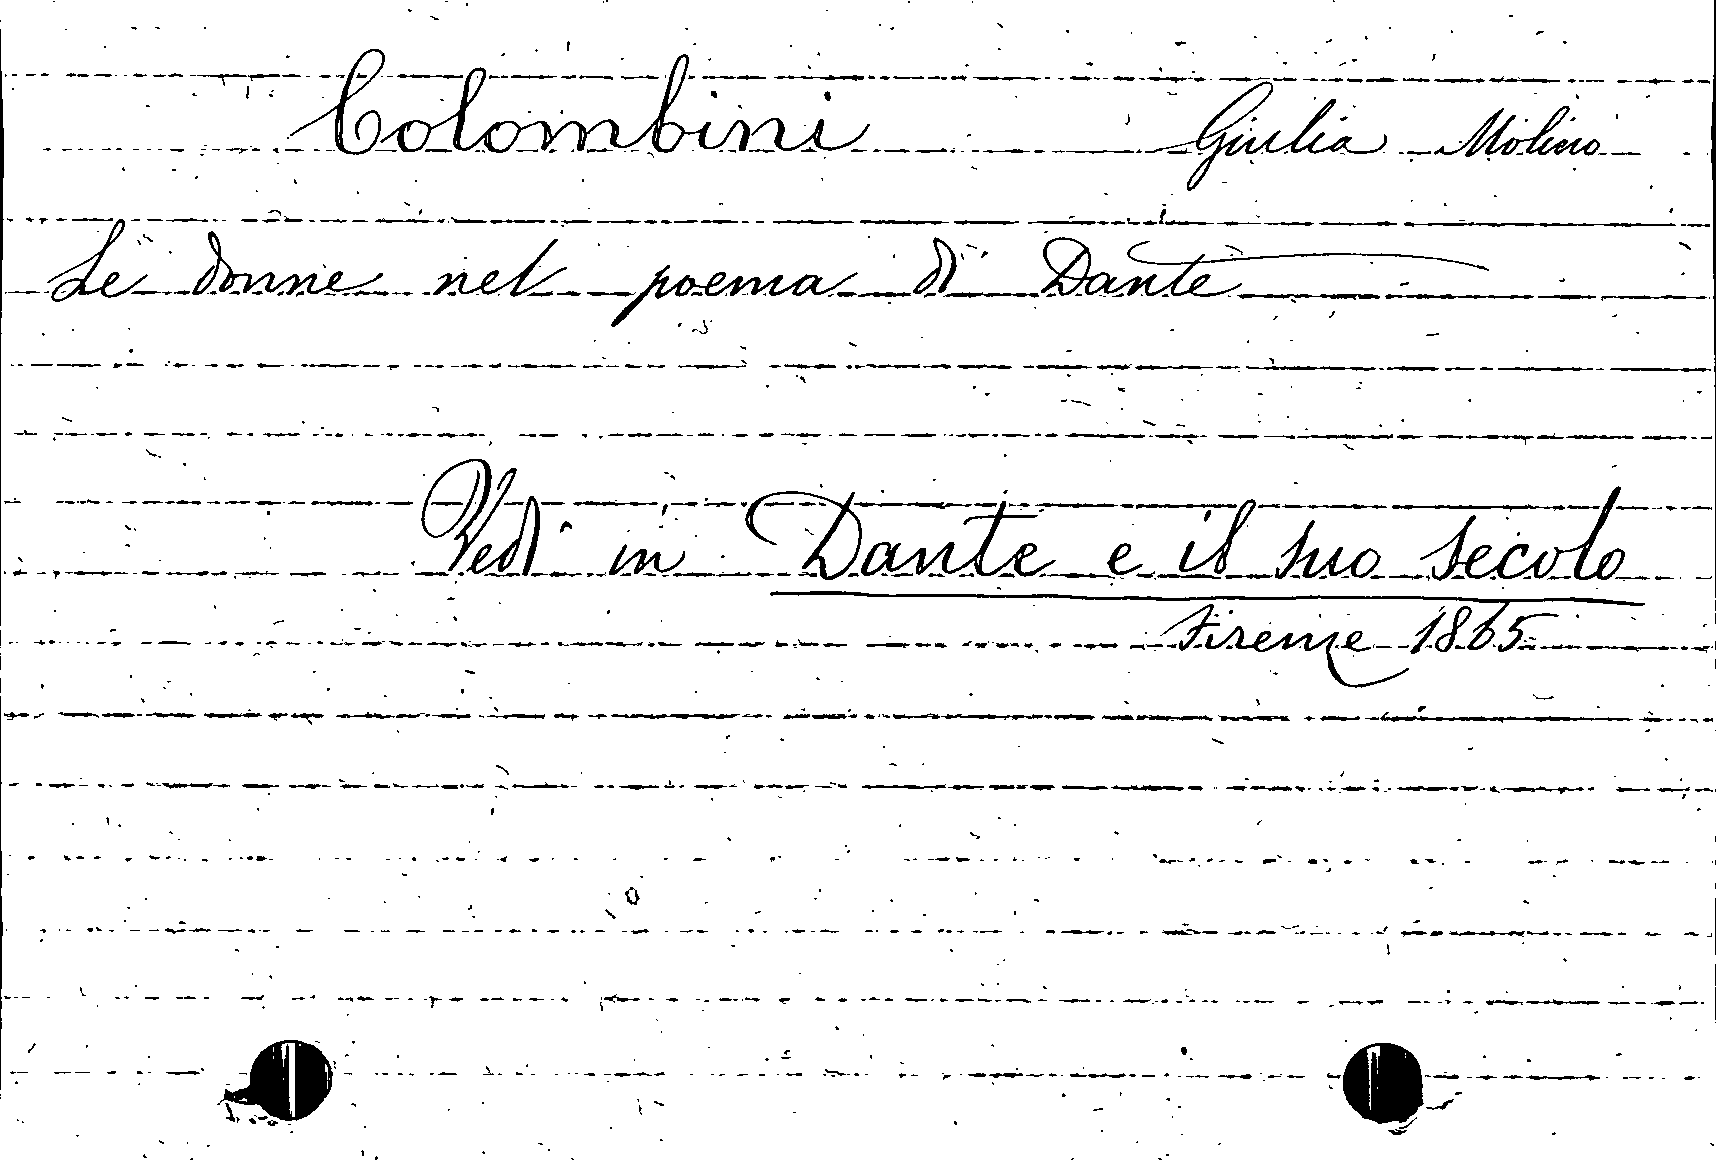 Colombini Giulia Molino
Le donne nel poema di Dante
Vedi in Dante e il suo secolo
Firenze 1865